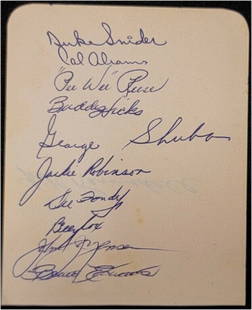 Duke Snider
Cal Abrams
"Pee Wee" Reese
Buddy Hicks
George Shuba
Jackie Robinson
Dee Fondy
Billy Cox